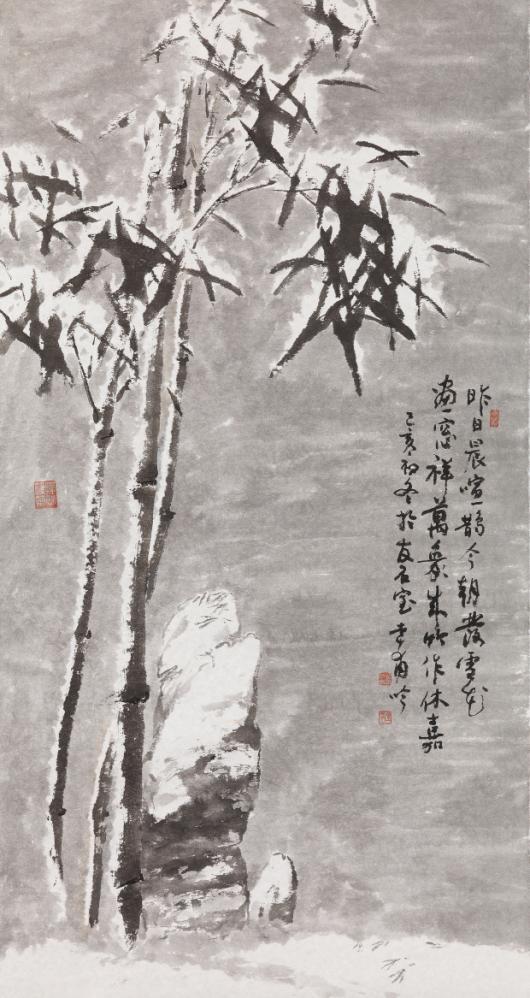 昨日晨喧鹊今朝发雪花
画窗祥万象朱竹作休嘉
乙亥初冬於友石室